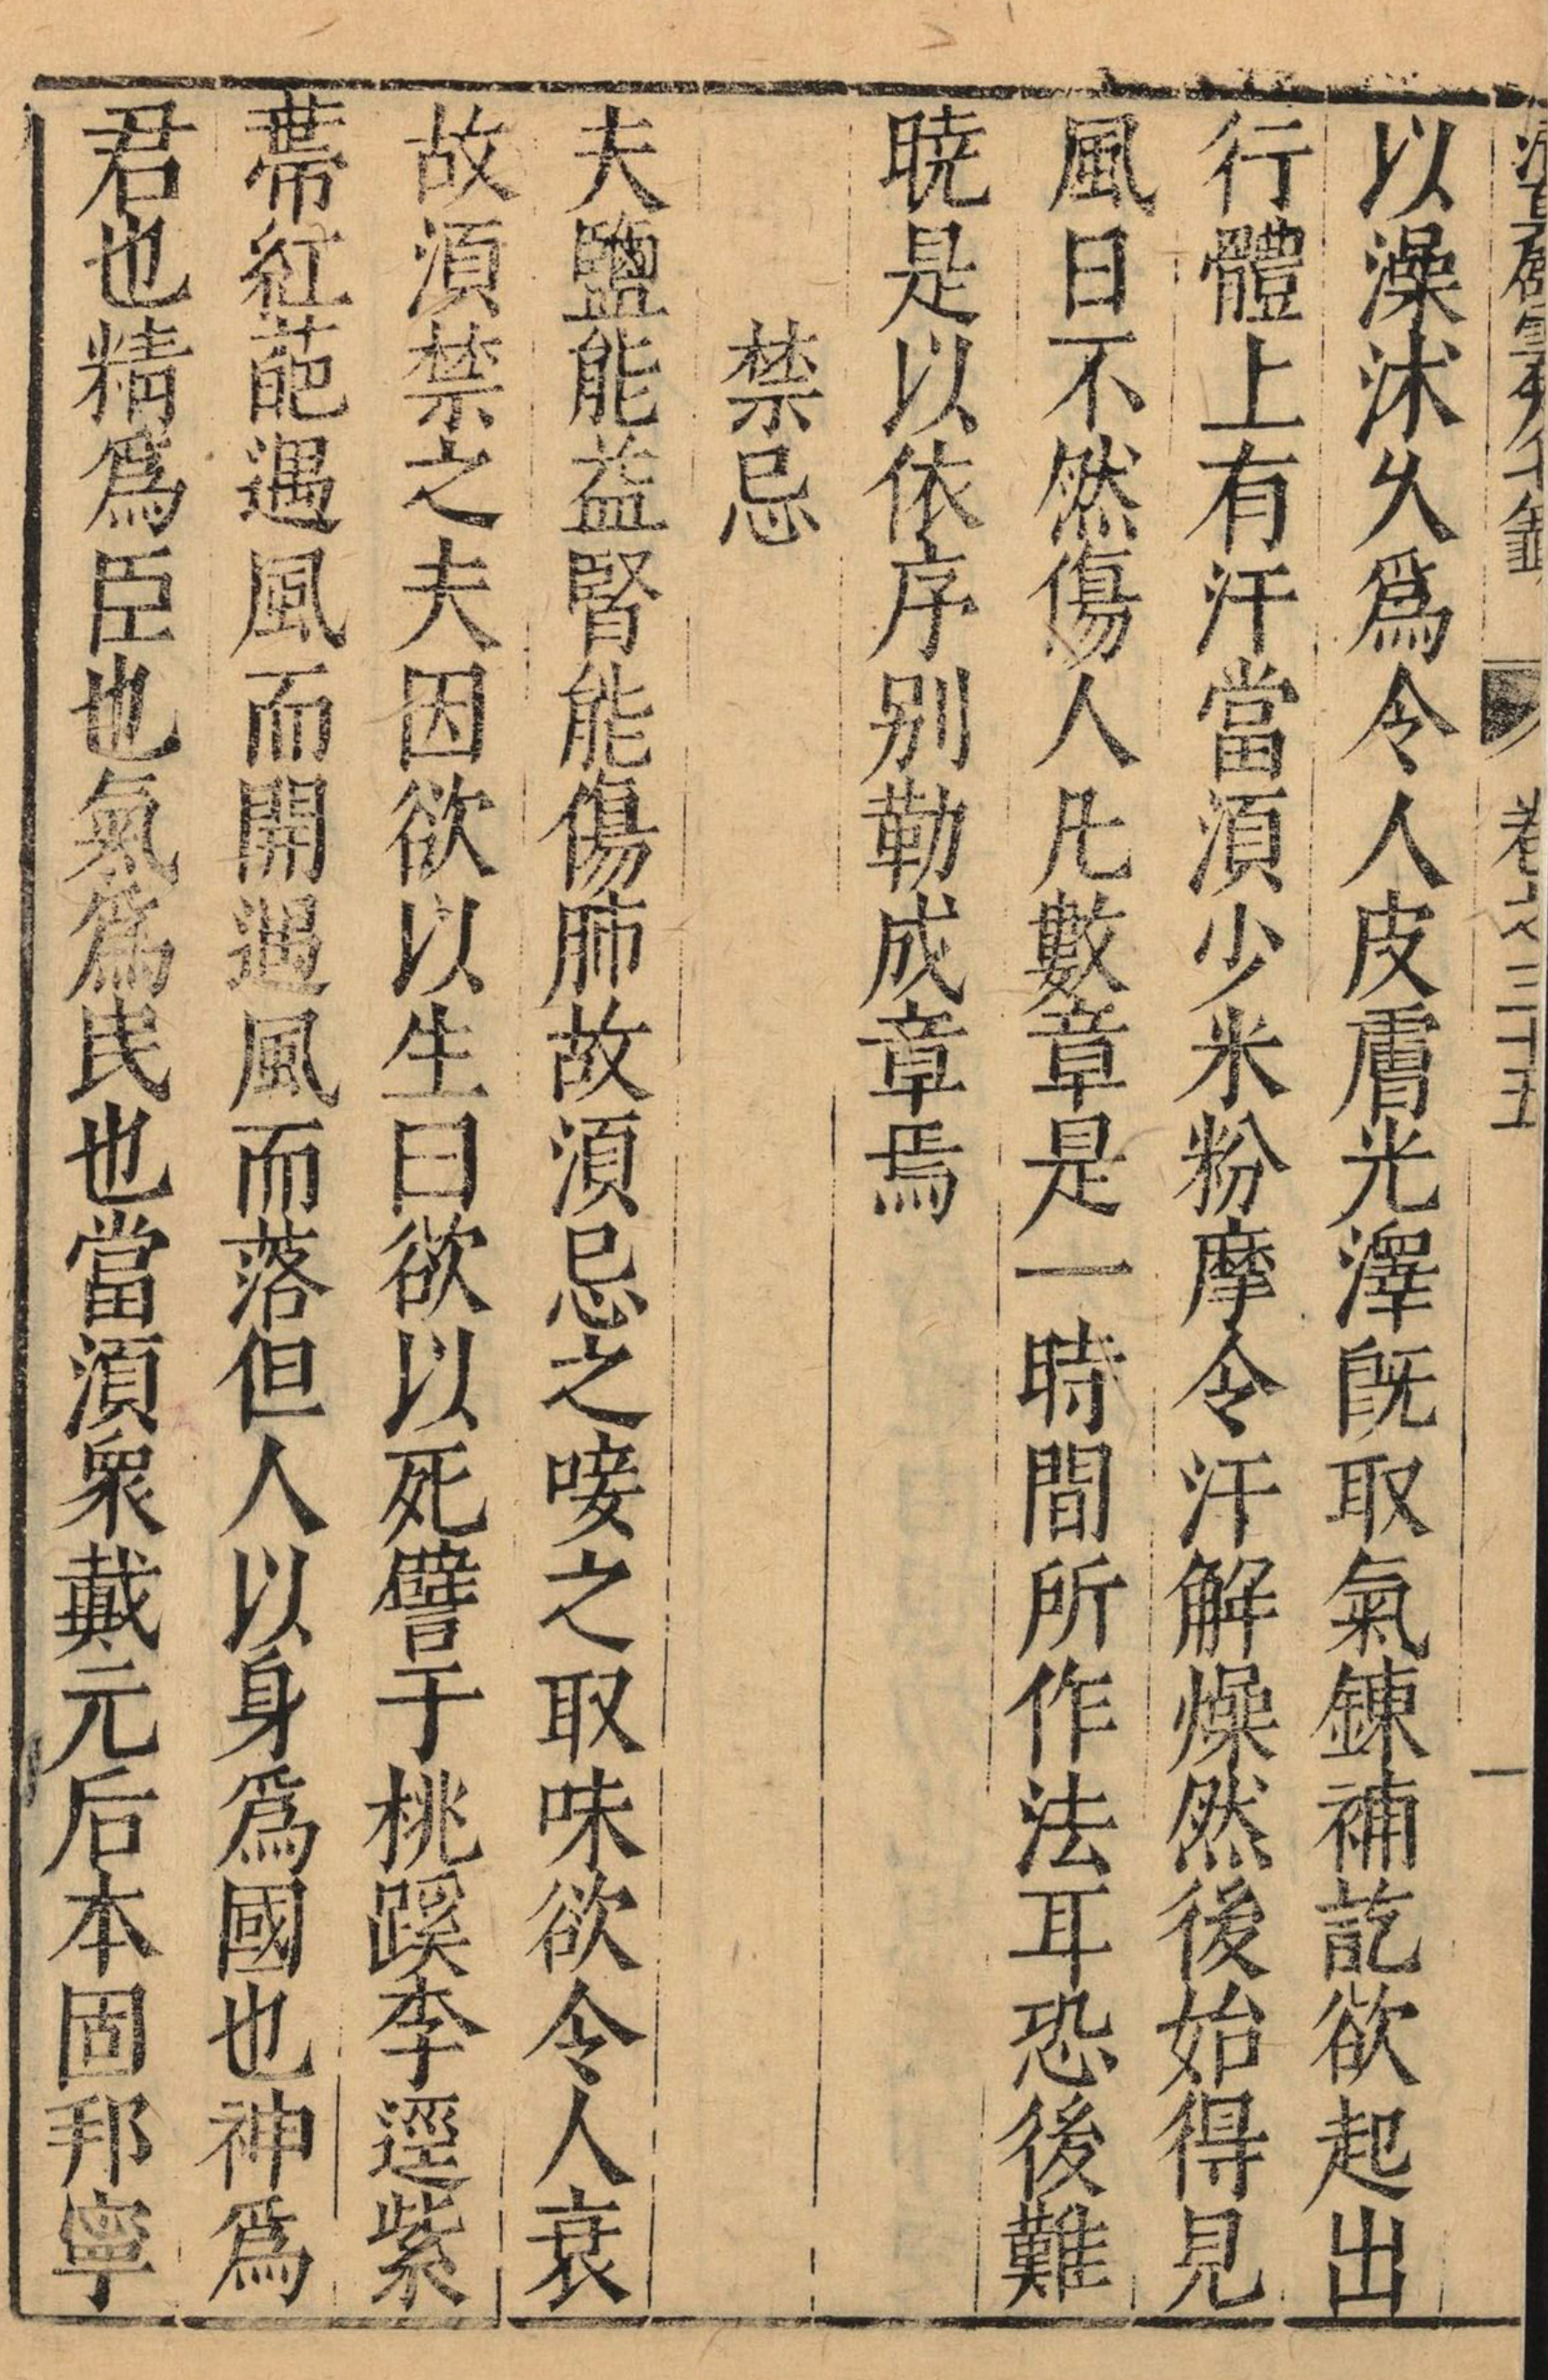 卷之三十五
一
以澡沐久爲令人皮膚光澤旣取氣鍊補訖欲起出
行體上有汗當湏少米粉摩令汗解燥然後始得見
風日不然傷人凡數章是一時間所作法耳恐後難
暁是以依序别勒成章焉
禁忌
夫鹽能益腎能傷肺故湏忌之唼之取味欲令人衰
故湏禁之夫因欲以生曰欲以死譬于桃蹊李逕紫
蔕紅葩遇風而開遇風而落但人以身爲國也神爲
君也精爲臣也氣爲民也當湏衆戴元后本固邦寧